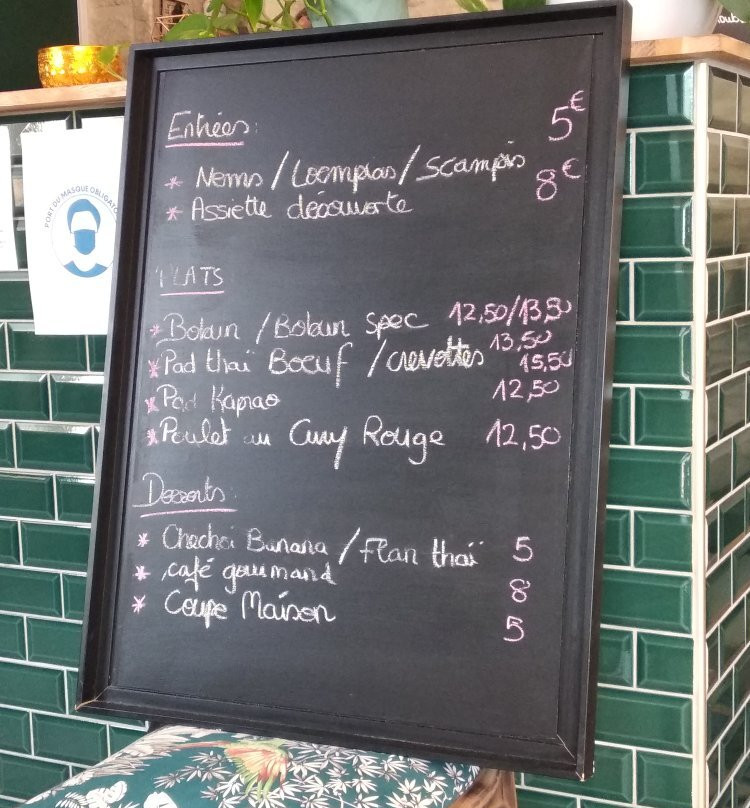 PORT DU MASQUE OBLIGATO
Entrées:
* Nems / Loempias / Scampis 5€
* Assiette découverte 8€
PLATS
* Bobun / Bobun spec 12,50/13,50
* Pad thaï Boeuf / crevottes 13,50 15,50
* Pad Kaprao 12,50
* Poulet au Curry Rouge 12,50
Desserts:
* Chachoi Banana / Flan thaï 5
* café gourmand 8
* Coupe Maison 5